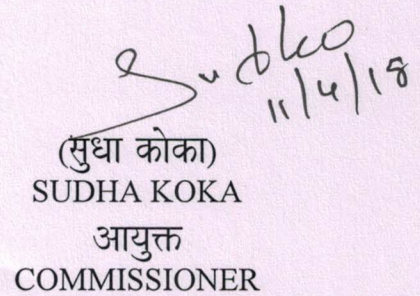 Sudko
11/4/18
(सुधा कोका)
SUDHA KOKA
आयुक्त
COMMISSIONER